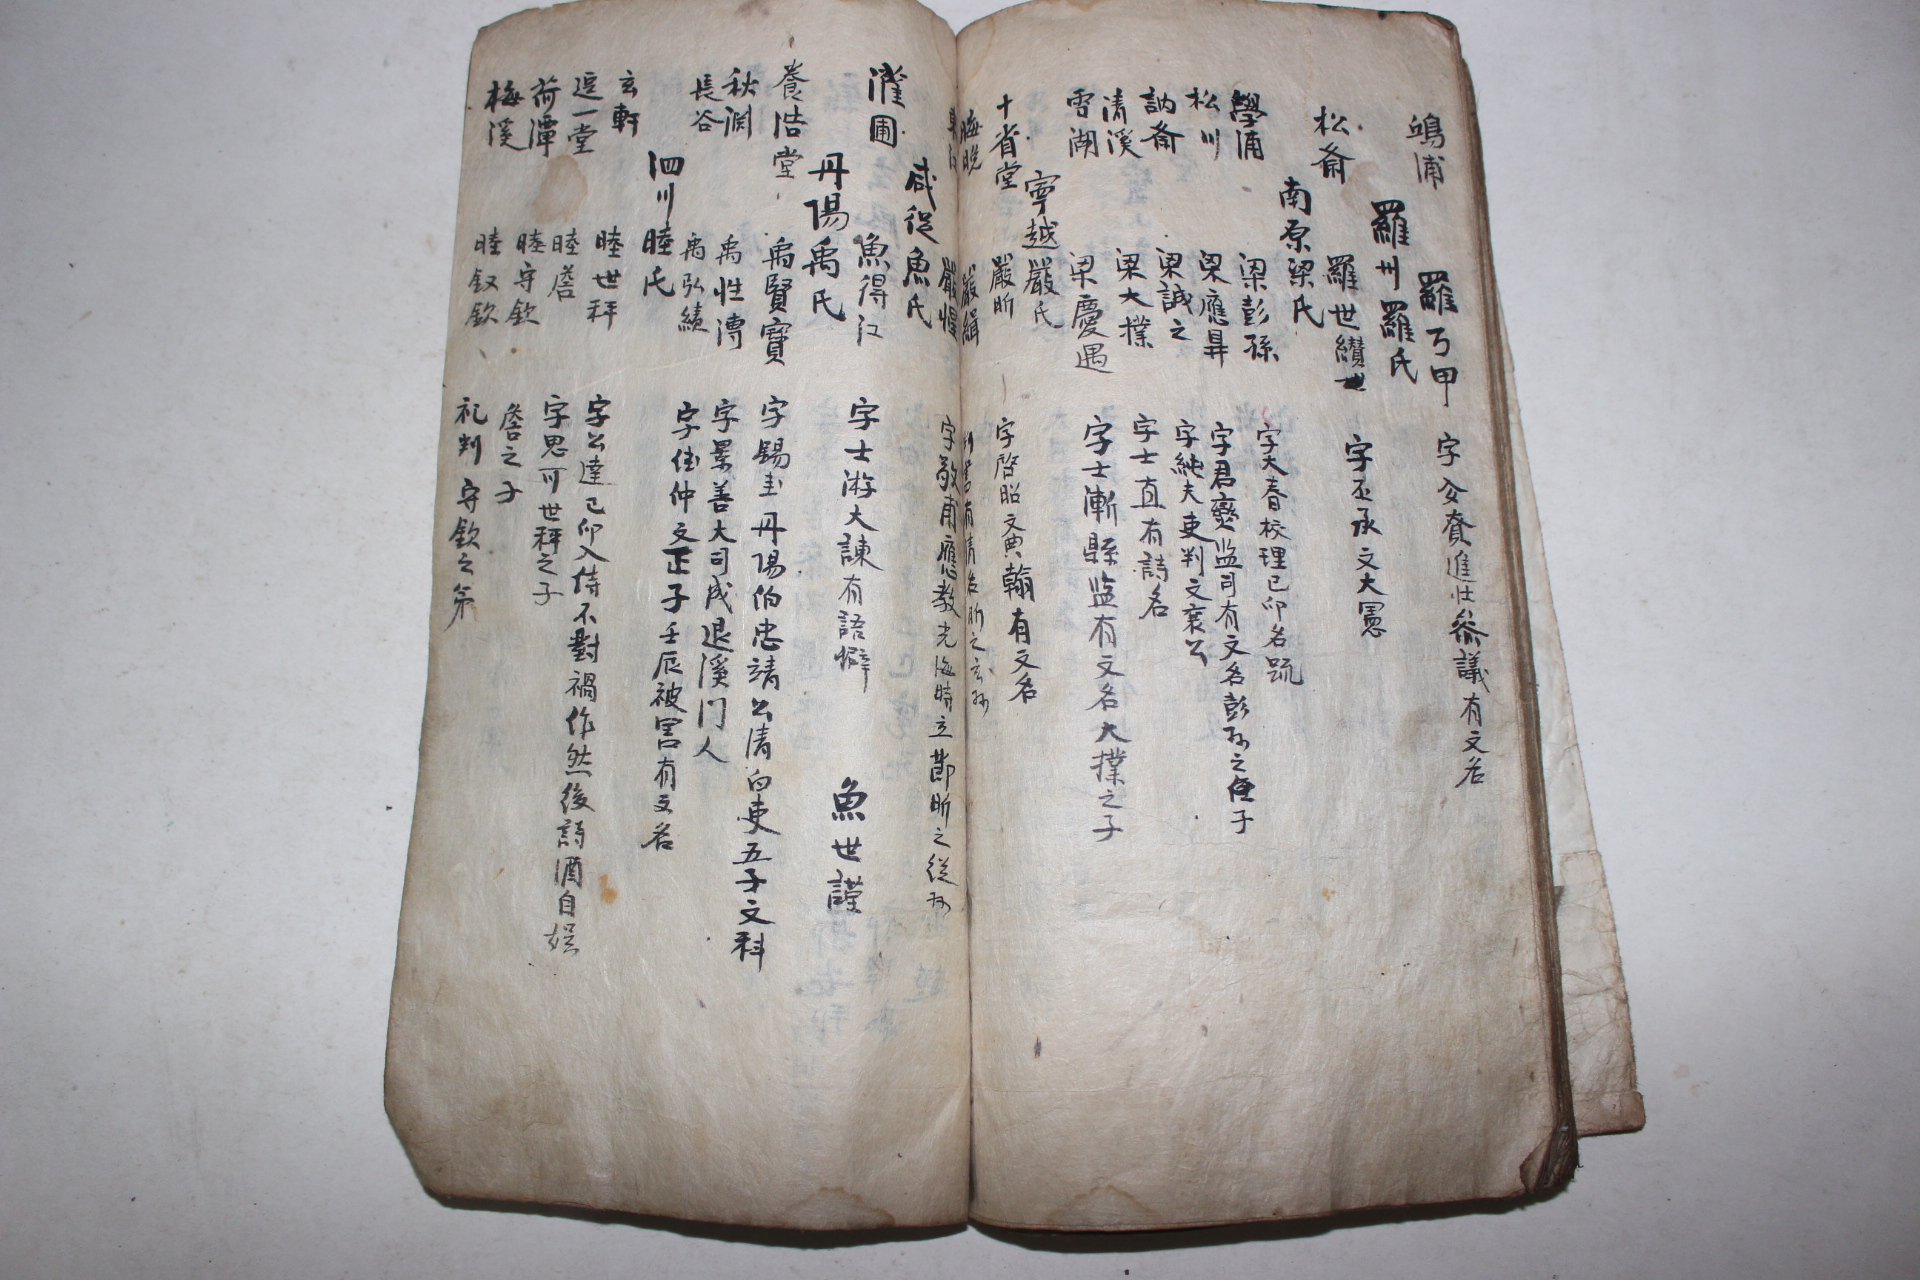 鴻浦 羅丂甲 字 進仕參議有文名
羅州羅氏
松斎 羅世纘 字丕承文大憲
南原梁氏
學浦 梁彭孫 字大春校理己卯名
松川 梁應鼎 字君燮監司有文名彭孫之子
訥斎 梁誠之 字純夫吏判文襄公
清溪 梁大撲 字士直有詩名
雪湖 梁慶遇 字士漸縣監有文名大撲之子
寧越嚴氏
十省堂 嚴昕 字啓昭文典翰有文名
嚴緝 有清名昕之玄孫
嚴惺 字敬甫應教光海時立節昕之從孫
咸從魚氏
灌圃 魚得江 字士游大諫有語癖 魚世謹
丹陽禹氏
養浩堂 禹賢寶 字錫圭丹陽伯忠靖公清白吏五子文科
秋淵 禹性傳 字景善大司成退溪门人
長谷 禹弘績 字 仲文正子壬辰被害有文名
泗川睦氏
玄軒 睦世秤 字公達己卯入侍不對禍作然後詩酒自娱
逗一堂 睦詹 字思可世秤之子
荷潭 睦守欽 詹之子
梅溪 睦叙欽 礼判 守欽之弟